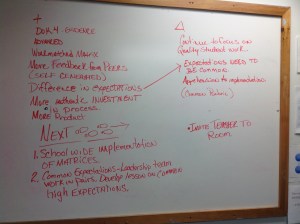 +
ADVANCED
MORE FEEDBACK FROM PEERS
(SELF EVALUATED)
DIFFERENCE IN EXPECTATIONS
MORE AUTHENTIC INVESTMENT
IN PROCESS
MORE PRODUCT
NEXT
1. SCHOOL WIDE IMPLEMENTATION
OF MATRICES.
2. COMMON EXPECTATIONS - LEADERSHIP TEAM
WORK IN PAIRS. DEVELOP LESSON ON COMMON
HIGH EXPECTATIONS.
Δ
CONTINUE TO FOCUS ON
QUALITY STUDENT WORK.
EXPECTATIONS NEED TO
BE COMMON
APPREHENSIONS TO IMPLEMENTATION
- INVITE TEACHER TO
ROOM